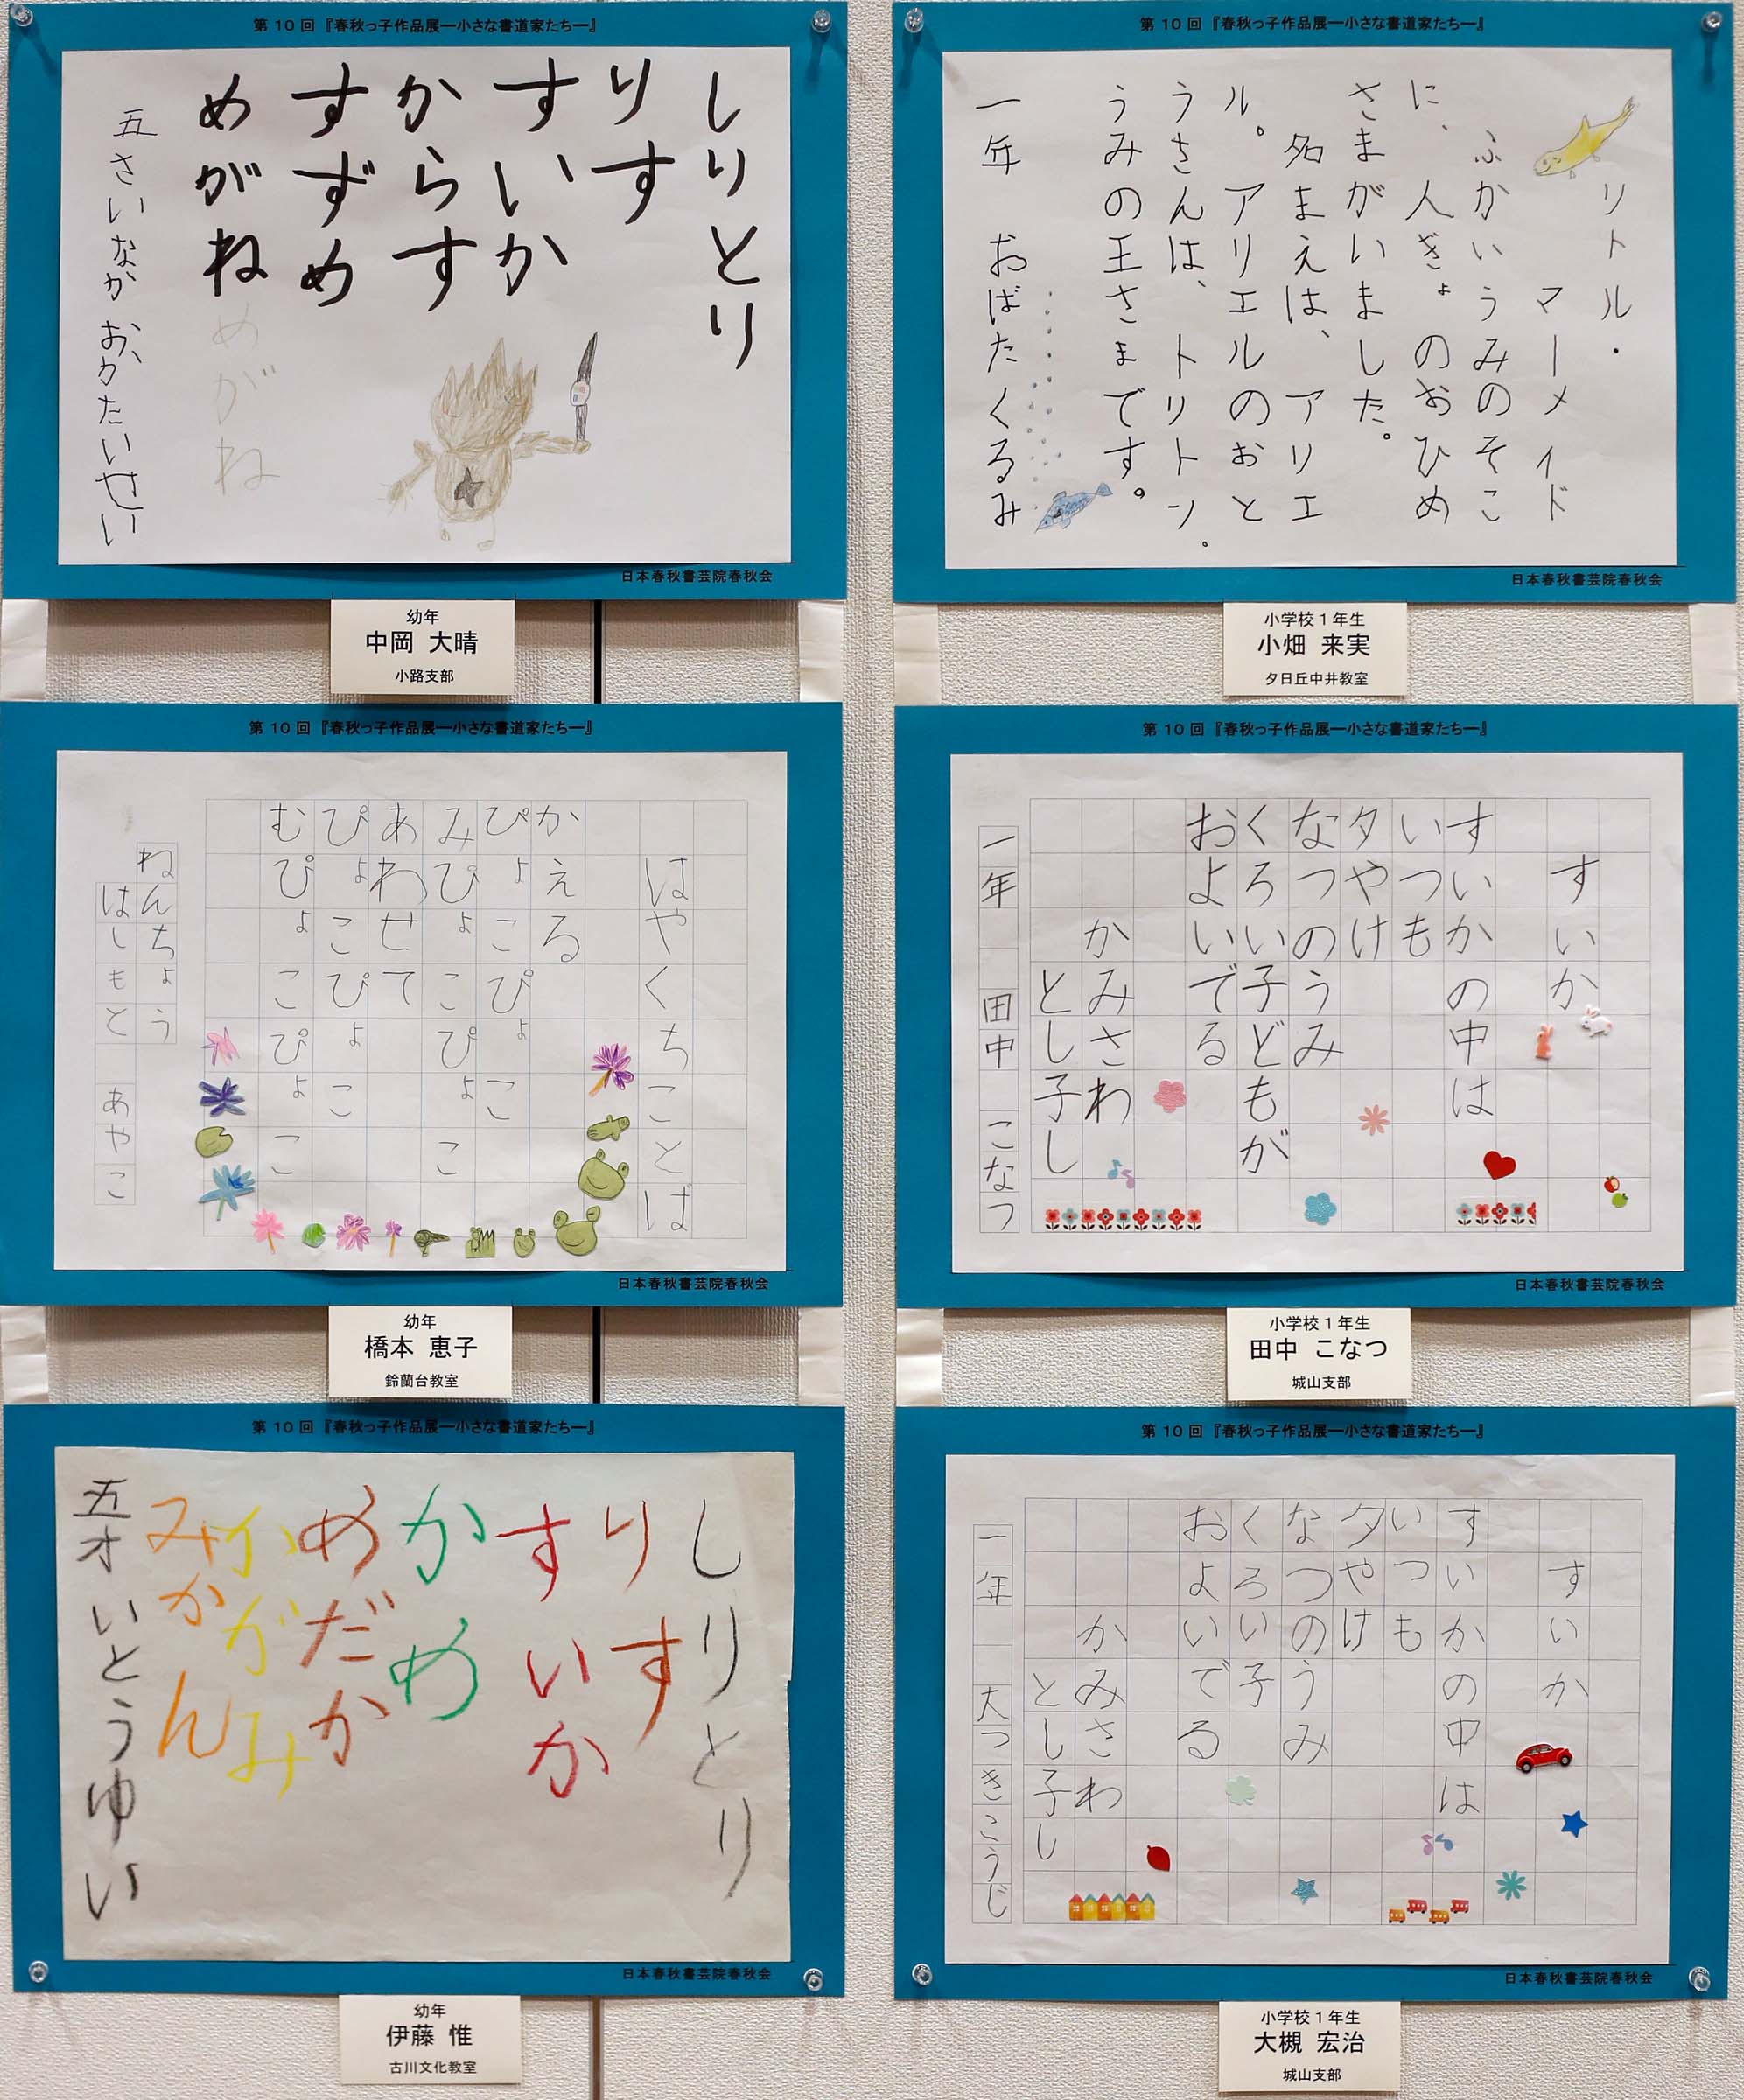 第10回『春秋っ子作品展―小さな書道家たち―』
しりとり
りす
すいか
からす
すずめ
めがね
めがね
五さいなかおかたいせい
日本春秋書芸院春秋会
幼年
中岡 大晴
小路支部
第10回『春秋っ子作品展―小さな書道家たち―』
リトル・
マーメイド
ふかいうみのそこ
に、人ぎょのおひめ
さまがいました。
名まえは、アリエ
ル。アリエルのおと
うさんは、トリトン。
うみの王さまです。
一年 おばたくるみ
日本春秋書芸院春秋会
小学校1年生
小畑 来実
夕日丘中井教室
第10回『春秋っ子作品展―小さな書道家たち―』
はやくちことば
かえる
ぴょこぴょこ
みぴょこぴょこ
あわせて
ぴょこぴょこ
むぴょこぴょこ
ねんちょう
はしもと あやこ
日本春秋書芸院春秋会
幼年
橋本 恵子
鈴蘭台教室
第10回『春秋っ子作品展―小さな書道家たち―』
すいか
すいかの中は
いつも
夕やけ
なつのうみ
くろい子どもが
およいでる
かみさわ
とし子し
一年 田中 こなつ
日本春秋書芸院春秋会
小学校1年生
田中 こなつ
城山支部
第10回『春秋っ子作品展―小さな書道家たち―』
しりとり
りす
すいか
かめ
めだか
かがみ
みかん
五才いとうゆい
日本春秋書芸院春秋会
幼年
伊藤 惟
古川文化教室
第10回『春秋っ子作品展―小さな書道家たち―』
すいか
すいかの中は
いつも
夕やけ
なつのうみ
くろい子
およいでる
かみさわ
とし子し
一年 大つきこうじ
日本春秋書芸院春秋会
小学校1年生
大槻 宏治
城山支部